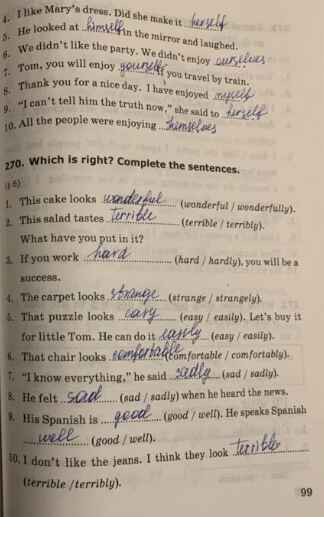 4. I like Mary's dress. Did she make it herself
5. He looked at himself in the mirror and laughed.
6. We didn't like the party. We didn't enjoy ourselves
7. Tom, you will enjoy yourself if you travel by train.
8. Thank you for a nice day. I have enjoyed myself
9. "I can't tell him the truth now," she said to herself
10. All the people were enjoying themselves
270. Which is right? Complete the sentences.
1. This cake looks wonderful (wonderful / wonderfully).
2. This salad tastes terrible (terrible / terribly).
What have you put in it?
3. If you work hard (hard / hardly), you will be a
success.
4. The carpet looks strange (strange / strangely).
5. That puzzle looks easy (easy / easily). Let's buy it
for little Tom. He can do it easily (easy / easily).
6. That chair looks comfortable (comfortable / comfortably).
7. "I know everything," he said sadly (sad / sadly).
8. He felt sad (sad / sadly) when he heard the news.
9. His Spanish is good (good / well). He speaks Spanish
well (good / well).
10. I don't like the jeans. I think they look terrible
(terrible / terribly).
99